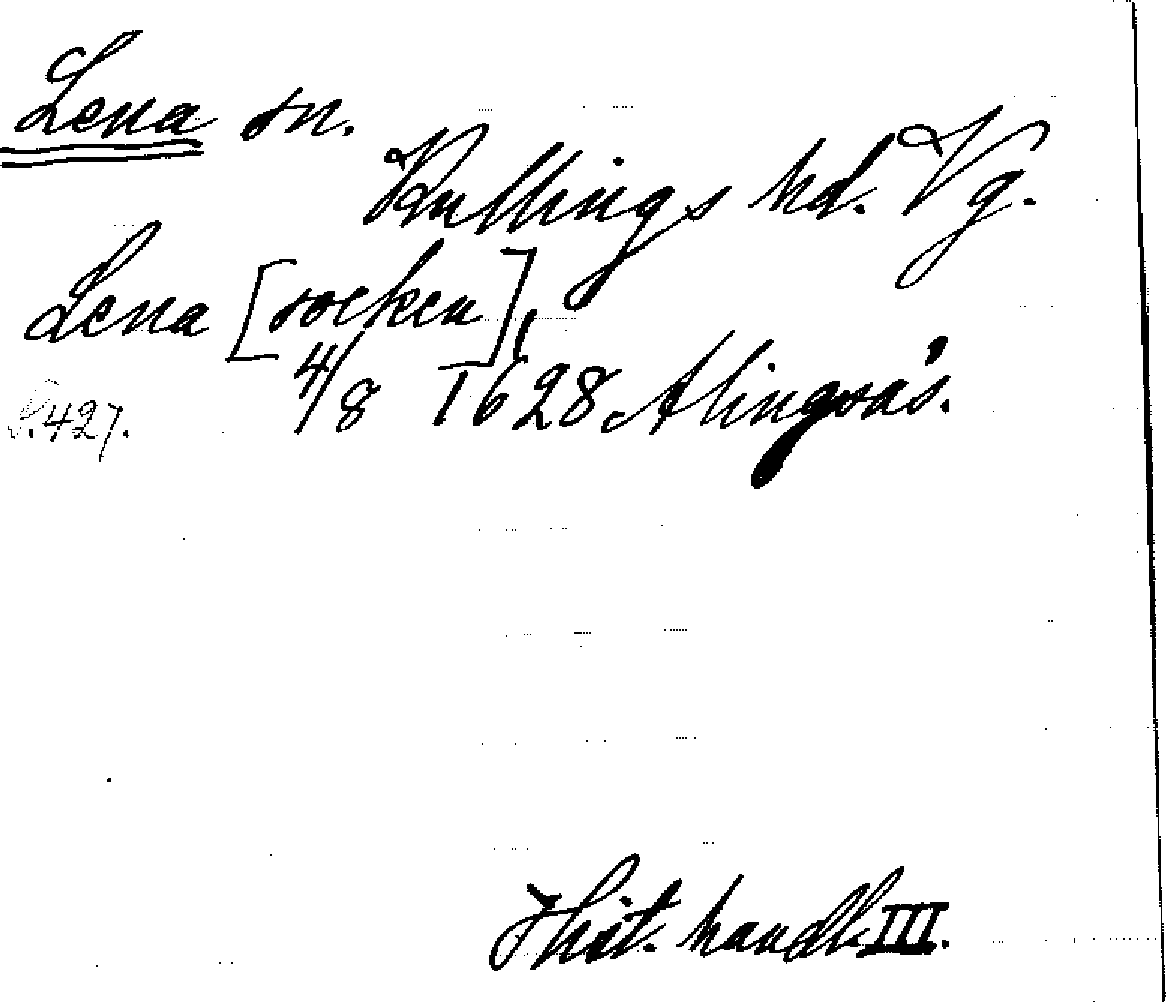 Lena sn.
Kullings hd. Vg.
Lena [socken],
4/8 1628 Alingsås.
S. 427.
Hist. handl. III.